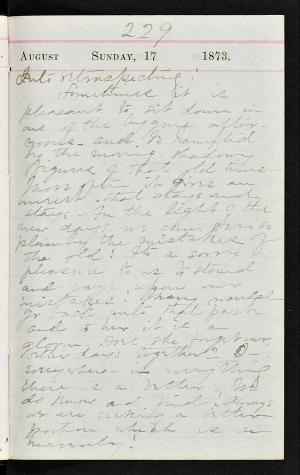 229
August Sunday, 17 1873.
Auto retrospecting!
Sometimes it is
pleasant to sit down in
one of the after-
noons and be haunted
by the moving shadowy
figures of that old time.
More often it gives an
unrest that stays and
stays. In the light of the
new days we can see so
plainly the mistakes of
the old! It's a sorry
pleasure to us to stand
and gaze upon our
mistakes! Many would
go back into that past
and to him it is a
gloom. Does she forget our
other days together?
Everywhere in everything
there is a better. We
do know and find always
we are seeking a better
portion which is in